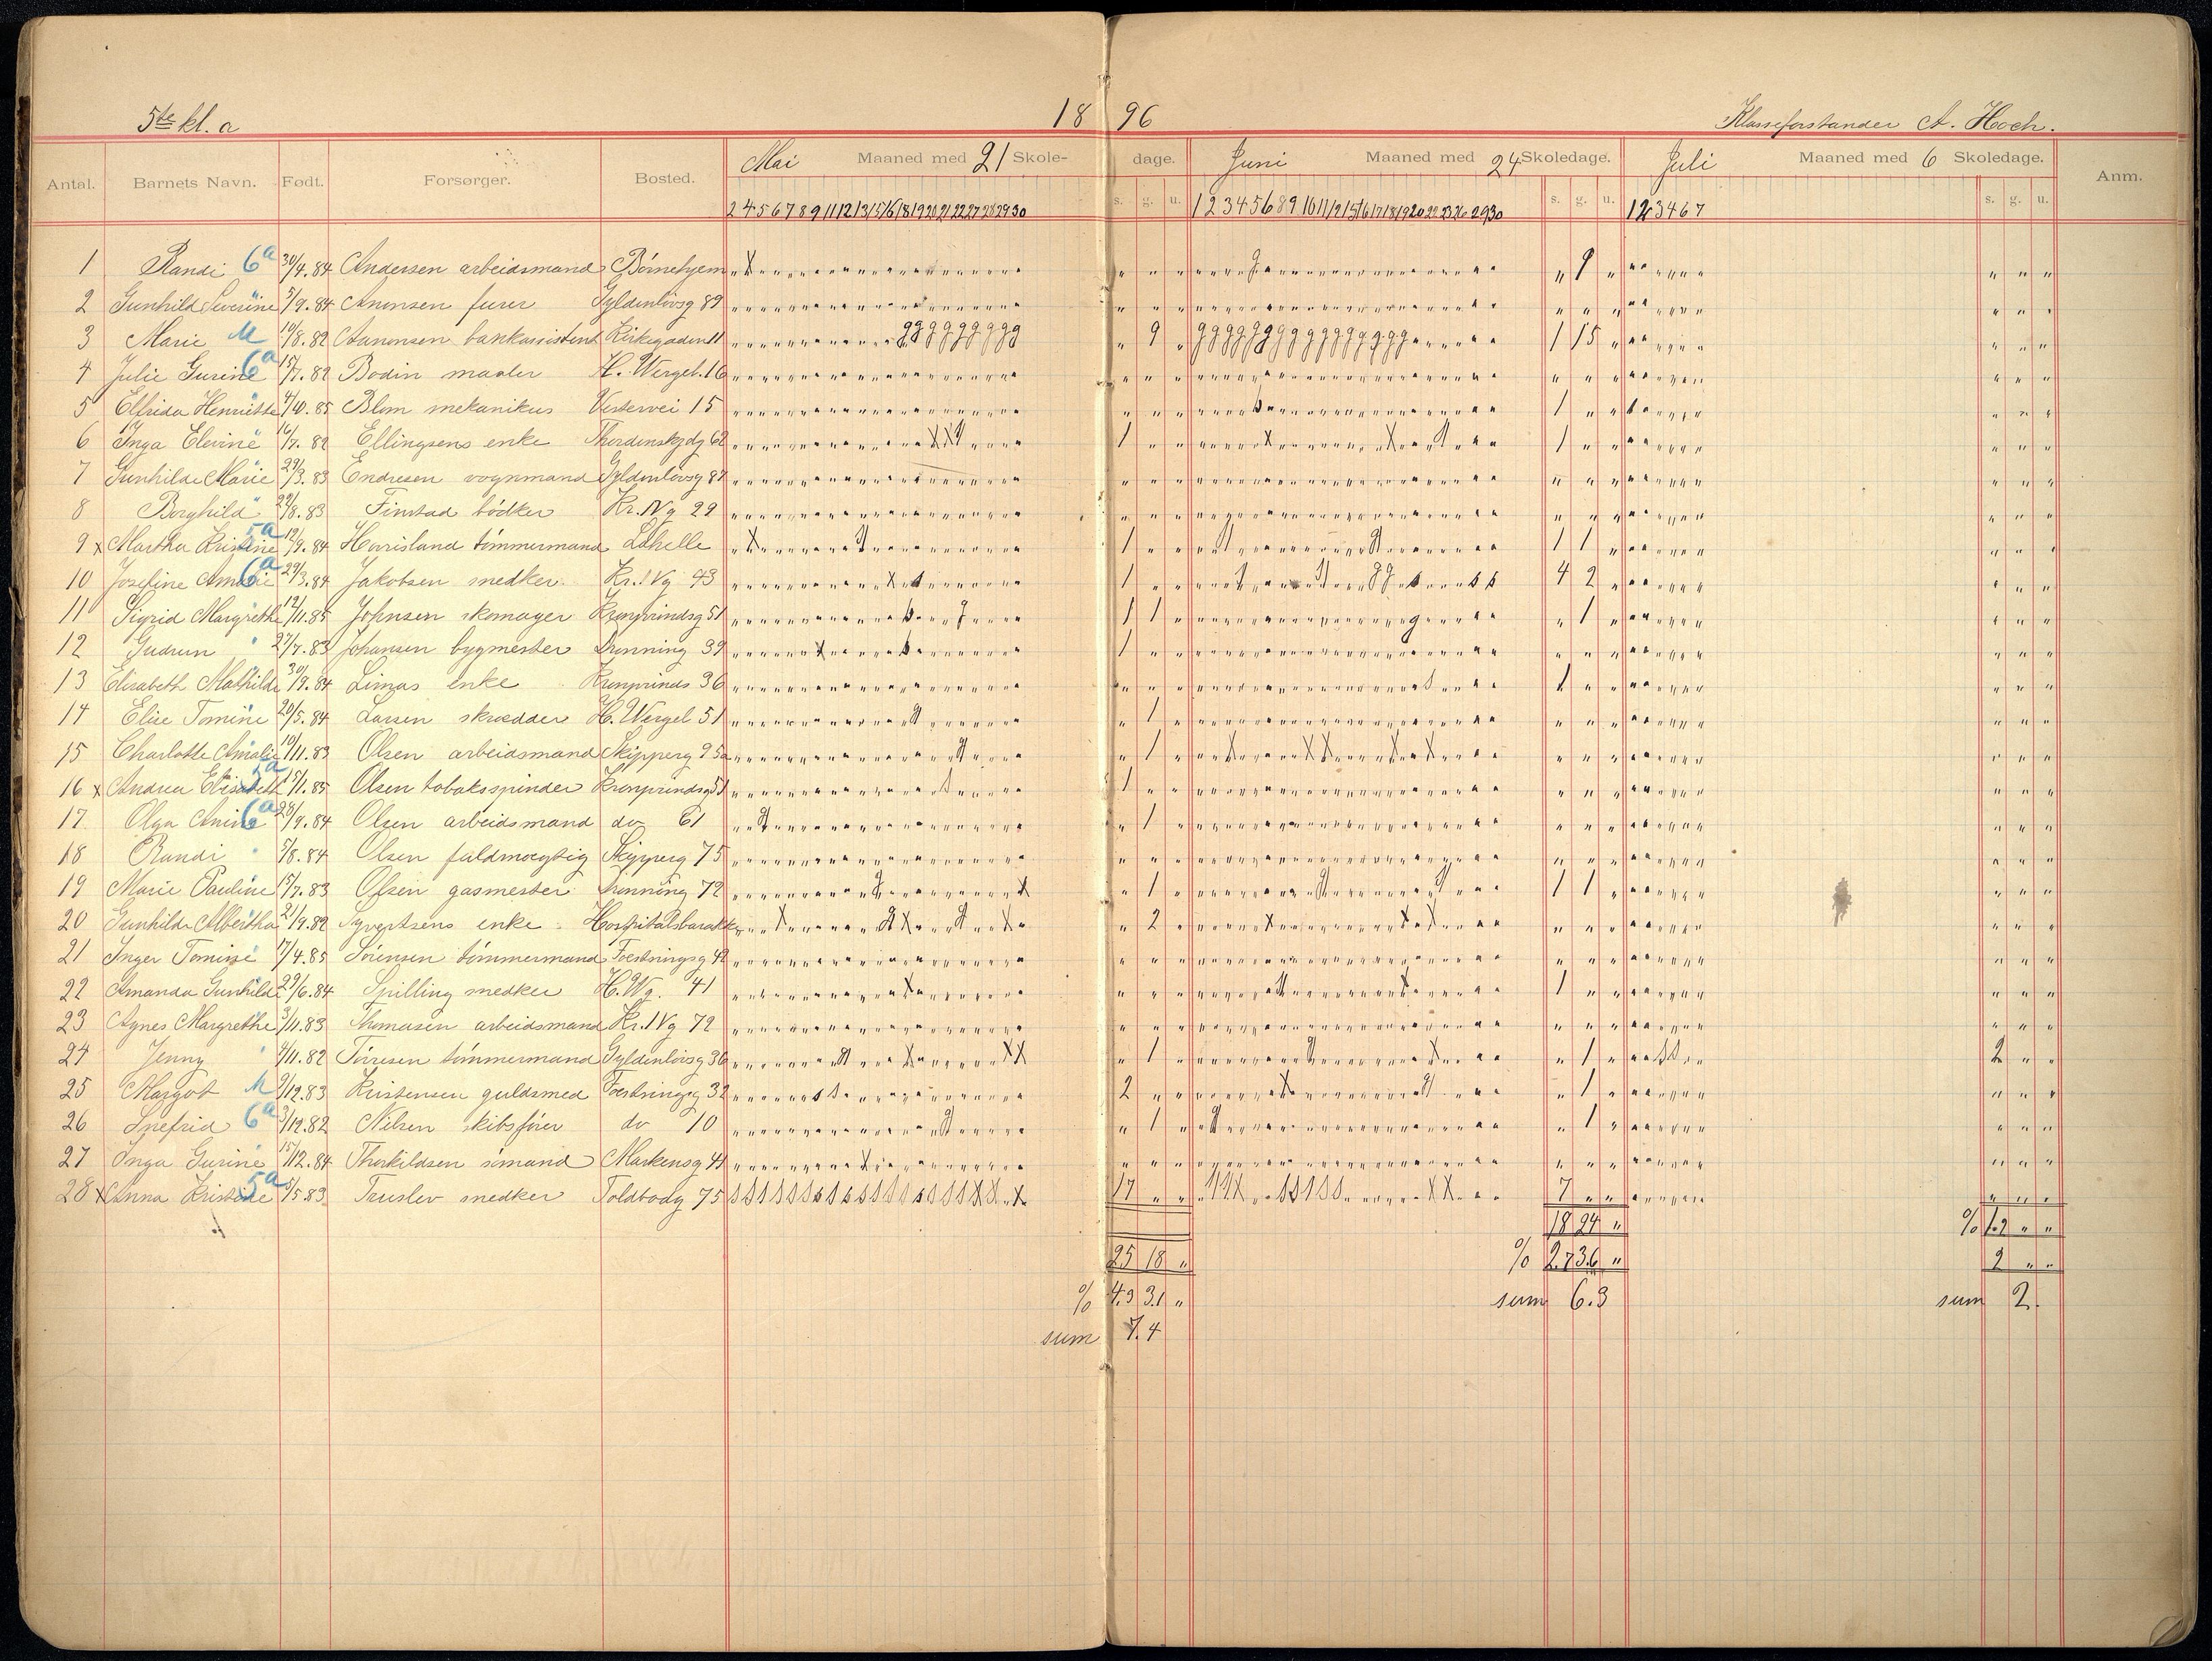 5te kl. a 18 96 Klasseforstander A. Hoch.
Antal. Barnets Navn. Født. Forsørger. Bosted. Mai Maaned med 21 Skole- dage. Juni Maaned med 24 Skoledage. Juli Maaned med 6 Skoledage. Anm.
s. g. u. s. g. u. s. g. u.
2 4 5 6 7 8 9 11 12 13 15 16 18 19 20 21 22 27 28 29 30 1 2 3 4 5 6 8 9 10 11 12 15 16 17 18 19 20 22 23 26 29 30 1 2 3 4 6 7
1 Randi 6a 30/4.84 Andersen arbeidsmand Børnehjem „ „ „ „ 1 „ „ „ „
2 Gunhild Severine 5/9.84 Anonsen furer Gyldenløvsg 89 „ „ „ „ „ „ „ „ „
3 Marie M 10/8.82 Aanonsen bankassistent Kirkegaden 11 „ 9 „ 1 15 „ „ „ „
4 Julie Gurine 6a 15/7.82 Bodin maaler H. Wergel. 16 „ „ „ „ „ „ „ „ „
5 Elfrida Henriette 4/10.85 Blom mekanikus Vestervei 15 „ „ „ 1 „ „ „ „ „
6 Inga Elevine 16/7.82 Ellingsens enke Thordenskjdg 62 1 „ „ 1 „ „ „ „ „
7 Gunhilde Marie 29/3.83 Endresen vognmand Gyldenløvsg 87 „ „ „ „ „ „ „ „ „
8 Borghild 22/8.83 Finstad bødker Kr. IVg 29 „ „ „ „ „ „ „ „ „
9 x Martha Kristine 5a 12/9.84 Horrisland tømmermand Lahelle 1 „ „ 1 1 „ „ „ „
10 Josefine Amalie 6a 29/3.84 Jakobsen snedker Kr. IVg 43 1 „ „ 4 2 „ „ „ „
11 Sigrid Margrethe 12/11.85 Johnsen skomager Kronprindsg 51 1 1 „ „ 1 „ „ „ „
12 Gudrun 27/7.83 Johansen bygmester Dronning 39 1 „ „ „ „ „ „ „ „
13 Elisabeth Mathilde 30/9.84 Limas enke Kronprinds 36 „ „ „ 1 „ „ „ „ „
14 Elise Tomine 20/5.84 Larsen skrædder H. Wergel 51 „ 1 „ „ „ „ „ „ „
15 Charlotte Amalie 10/11.83 Olsen arbeidsmand Skipperg 95a „ 1 „ „ „ „ „ „ „
16 x Andrea Elisabeth 5a 15/1.85 Olsen tobaksspinder Kronprindsg 51 1 „ „ „ „ „ „ „ „
17 Olga Anine 6a 28/9.84 Olsen arbeidsmand do 61 „ 1 „ „ „ „ „ „ „
18 Randi 5/8.84 Olsen fuldmægtig Skipperg 75 „ „ „ „ „ „ „ „ „
19 Marie Pauline 15/7.83 Olsen gasmester Dronning 72 „ 1 „ 1 1 „ „ „ „
20 Gunhilde Albertha 21/9.82 Syvertsens enke Hospitalsbarakke „ 2 „ „ „ „ „ „ „
21 Inger Tomine 17/4.85 Sørensen tømmermand Fæstningsg 42 „ „ „ „ „ „ „ „ „
22 Amanda Gunhilde 29/6.84 Spilling snedker H. Wg. 41 „ „ „ 1 „ „ „ „ „
23 Agnes Margrethe 3/11.83 Thomasen arbeidsmand Kr. IVg 72 „ „ „ „ „ „ „ „ „
24 Jenny 4/11.82 Tørresen tømmermand Gyldenløvsg 36 „ 1 „ „ 1 „ 2 „ „
25 Margot M 9/12.83 Kristensen guldsmed Fæstningsg 32 2 „ „ „ 1 „ „ „ „
26 Snefrid 6a 3/12.82 Nilsen skibsfører do 10 „ 1 „ „ 1 „ „ „ „
27 Inga Gurine 15/12.84 Thorkildsen sømand Markensg 41 „ „ „ „ „ „ „ „ „
28 x Anna Kristine 5a 5/5.83 Truslev snedker Toldbodg 75 17 „ „ 7 „ „ „ „ „
18 24 „ % 1.2 „ „
25 18 „ % 2.7 3.6 „ 2 „ „
% 4.3 3.1 „ sum 6.3 sum 2.
sum 7.4